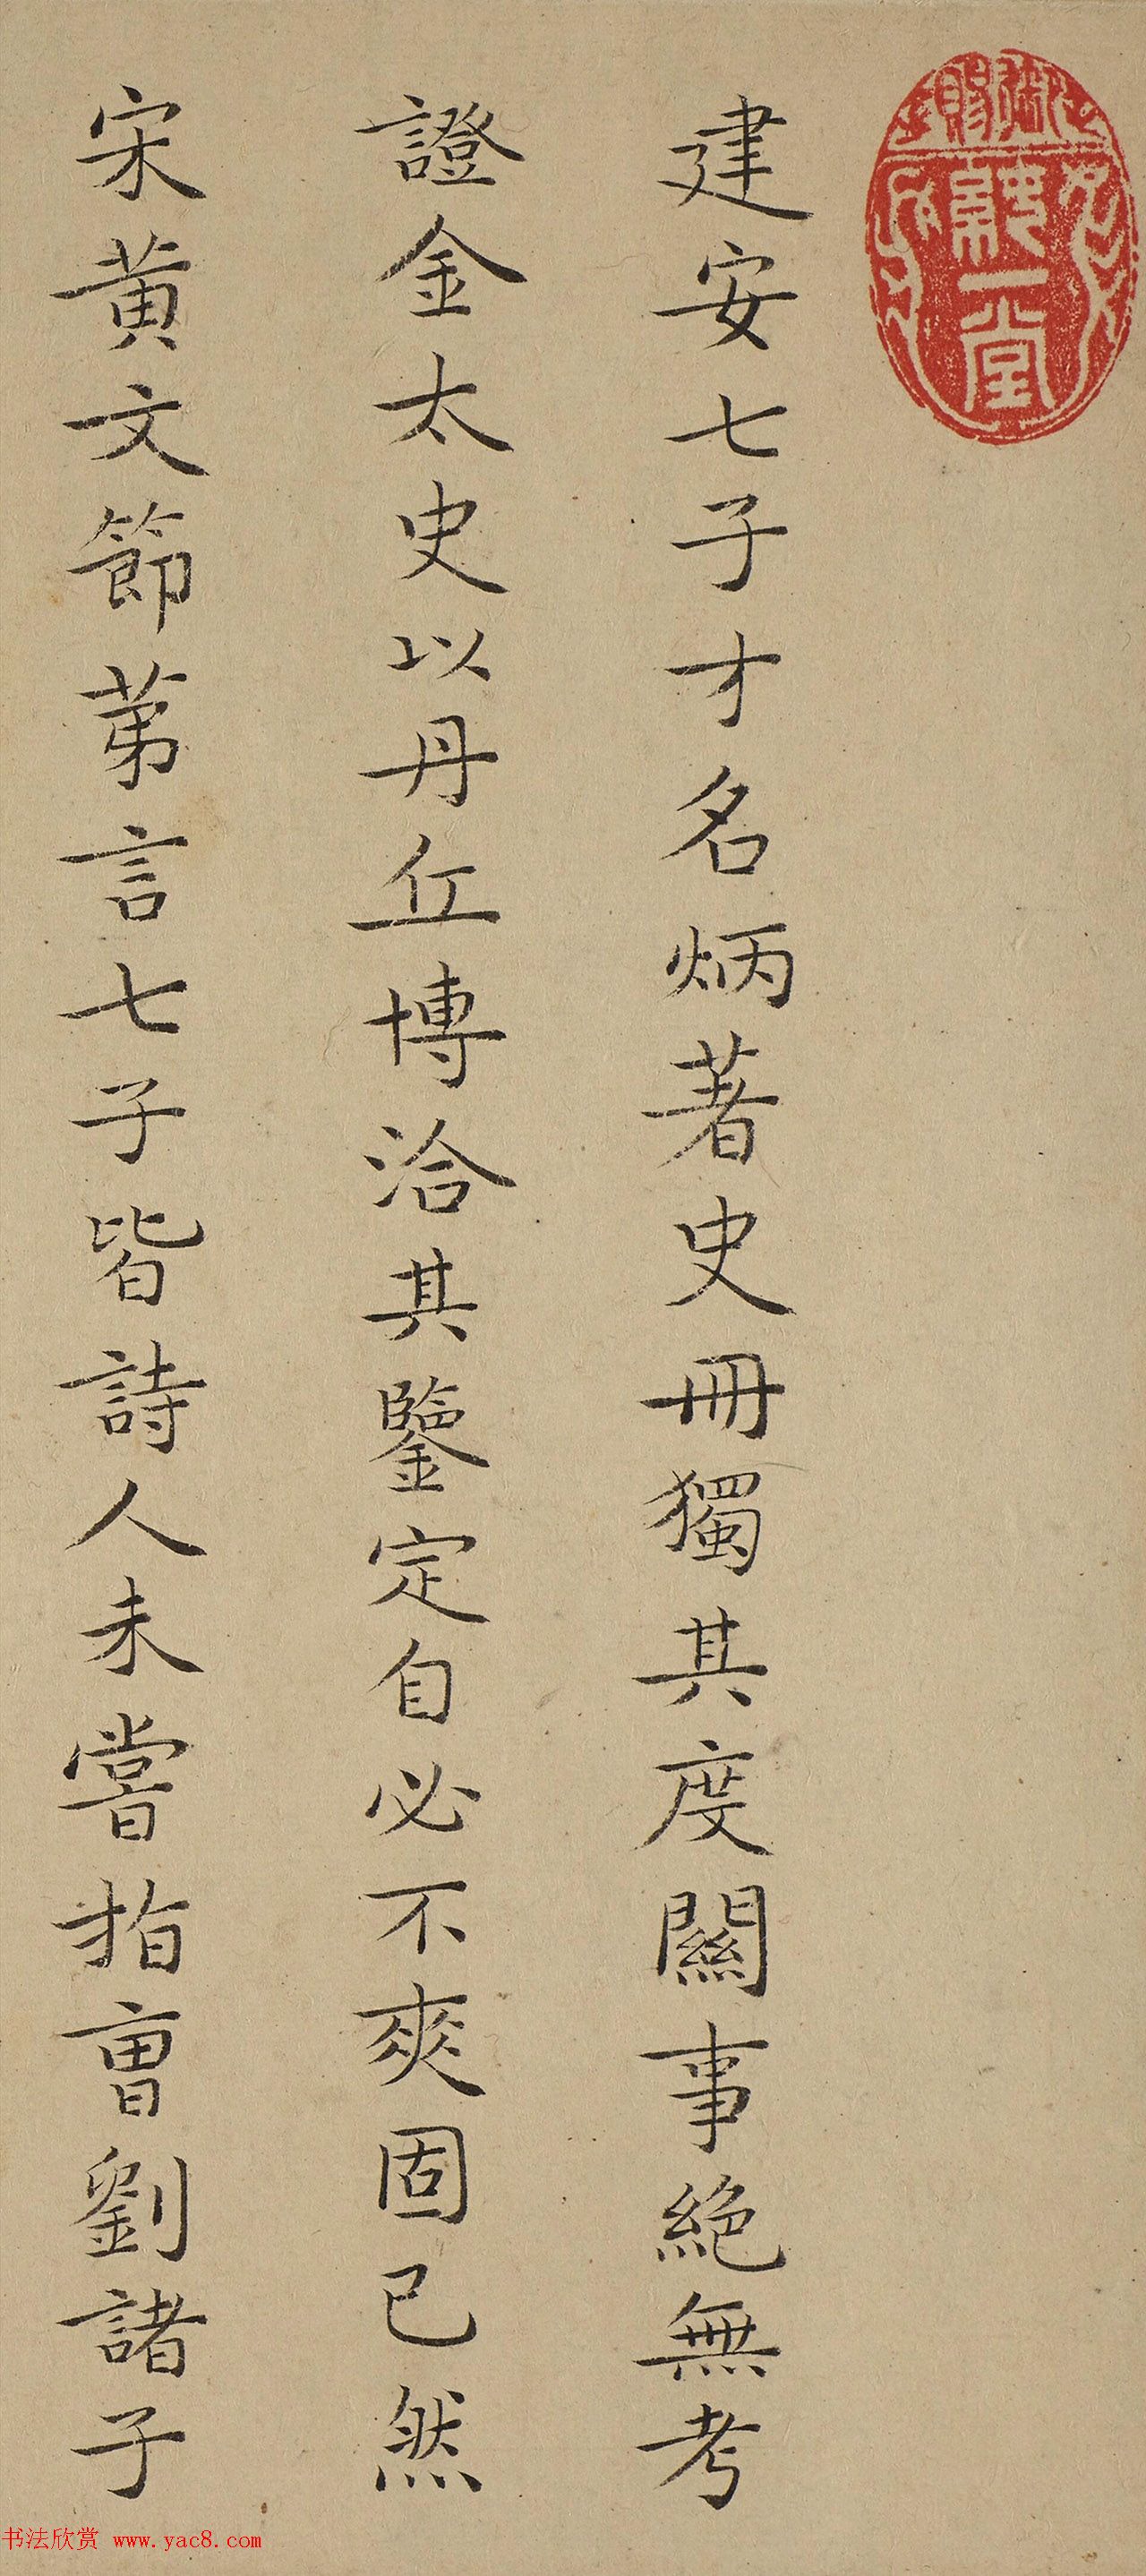 建安七子才名炳著史冊獨其度關事絕無考
證金太史以丹丘博洽其鑒定自必不爽固已然
宋黃文節苐言七子皆詩人未嘗指曹劉諸子
书法欣赏 www.yac8.com